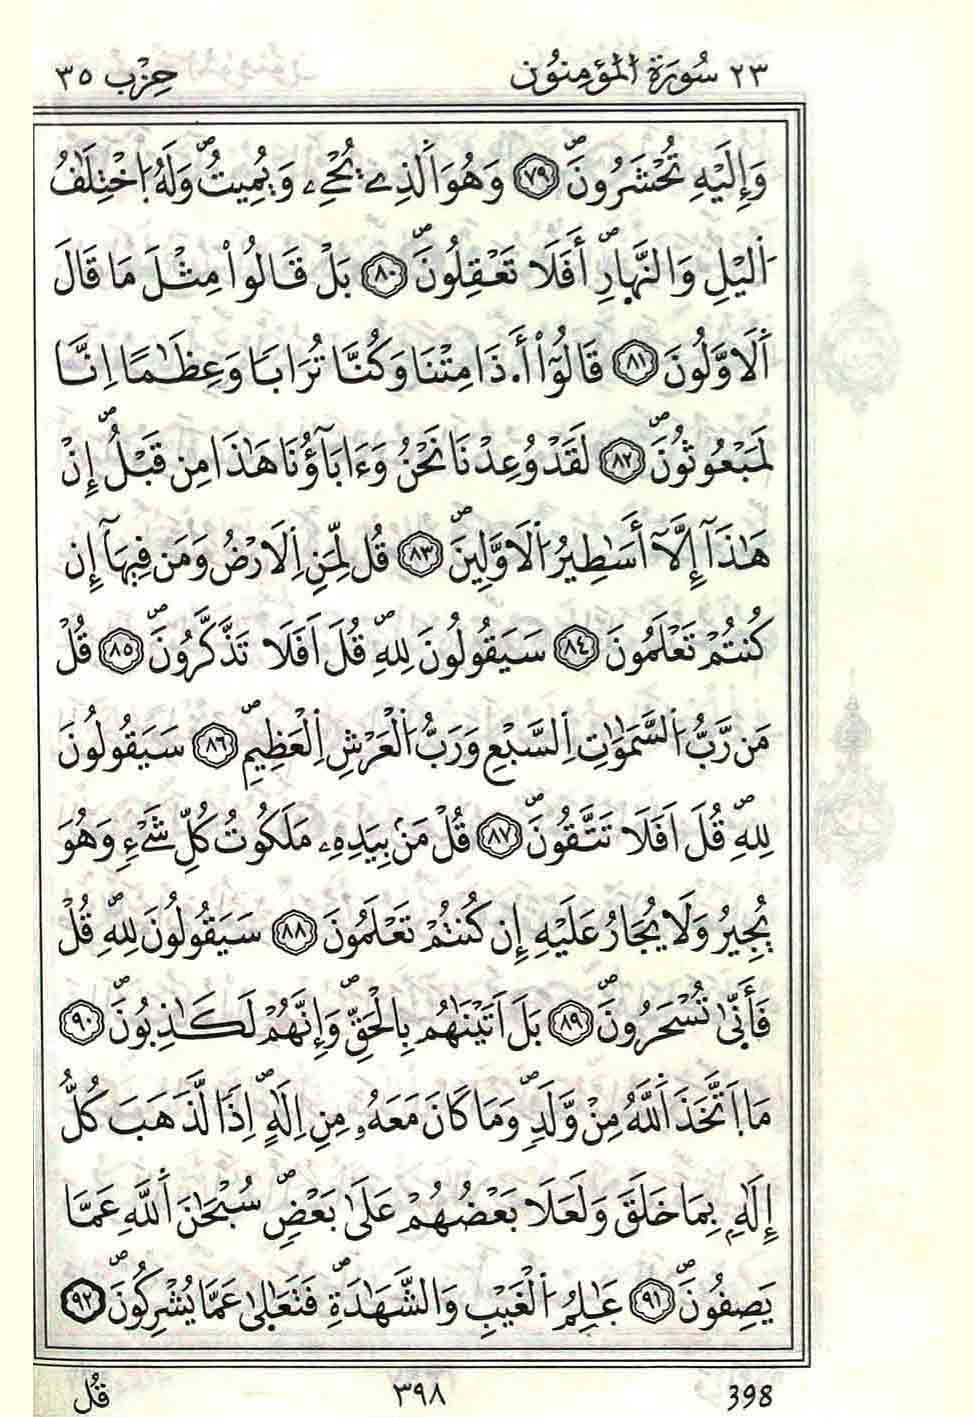 ٢٣ سُورَةُ اَلْمُؤْمِنُون حِزْب ٣٥
وَإِلَيْهِ تُحْشَرُونَۖ ٧٩ وَهُوَ اَلَّذِے يُحْيِۦ وَيُمِيتُۖ وَلَهُ اُ۪خْتِلَٰفُ
اُ۬ليْلِ وَالنَّهارِۖ أَفَلَا تَعْقِلُونَۖ ٨٠ بَلْ قَالُواْ مِثْلَ مَا قَالَ
اَ۬لَاوَّلُونَ ٨١ قَالُوٓاْ أَ.ذَا مِتْنَا وَكُنَّا تُرَابٗا وَعِظَٰمًا اِنَّا
لَمَبْعُوثُونَۖ ٨٢ لَقَدْ وُعِدْنَا نَحْنُ وَءَابَآؤُنَا هَٰذَا مِن قَبْلُۖ إِنْ
هَٰذَآ إِلَّآ أَسَٰطِيرُ اُ۬لَاوَّلِينَۖ ٨٣ قُل لِّمَنِ اِ۬لَارْضُ وَمَن فِيهَآ إِن
كُنتُمْ تَعْلَمُونَ ٨٤ سَيَقُولُونَ لِلهِۖ قُلَ اَفَلَا تَذَّكَّرُونَۖ ٨٥ قُلْ
مَن رَّبُّ اُ۬لسَّمَٰوَٰتِ اِ۬لسَّبْعِ وَرَبُّ اُ۬لْعَرْشِ اِ۬لْعَظِيمِۖ ٨٦ سَيَقُولُونَ
لِلهِۖ قُلَ اَفَلَا تَتَّقُونَۖ ٨٧ قُلْ مَنۢ بِيَدِهِۦ مَلَكُوتُ كُلِّ شَےْءٖ وَهُوَ
يُجِيرُ وَلَا يُجَارُ عَلَيْهِ إِن كُنتُمْ تَعْلَمُونَ ٨٨ سَيَقُولُونَ لِلهِۖ قُلْ
فَأَنّ۪ىٰ تُسْحَرُونَۖ ٨٩ بَلَ اَتَيْنَٰهُم بِالْحَقِّۖ وَإِنَّهُمْ لَكَٰذِبُونَۖ ٩٠
مَا اَ۪تَّخَذَ اَ۬للَّهُ مِنْ وَّلَدٖۖ وَمَا كَانَ مَعَهُۥ مِنِ اِلَٰهٍۖ اِذاٗ لَّذَهَبَ كُلُّ
إِلَٰهِۢ بِمَا خَلَقَ وَلَعَلَا بَعْضُهُمْ عَلَىٰ بَعْضٖۖ سُبْحَٰنَ اَ۬للَّهِ عَمَّا
يَصِفُونَۖ ٩١ عَٰلِمُ اُ۬لْغَيْبِ وَالشَّهَٰدَةِۖ فَتَعَٰل۪ىٰ عَمَّا يُشْرِكُونَۖ ٩٢
398 ٣٩٨ قُل